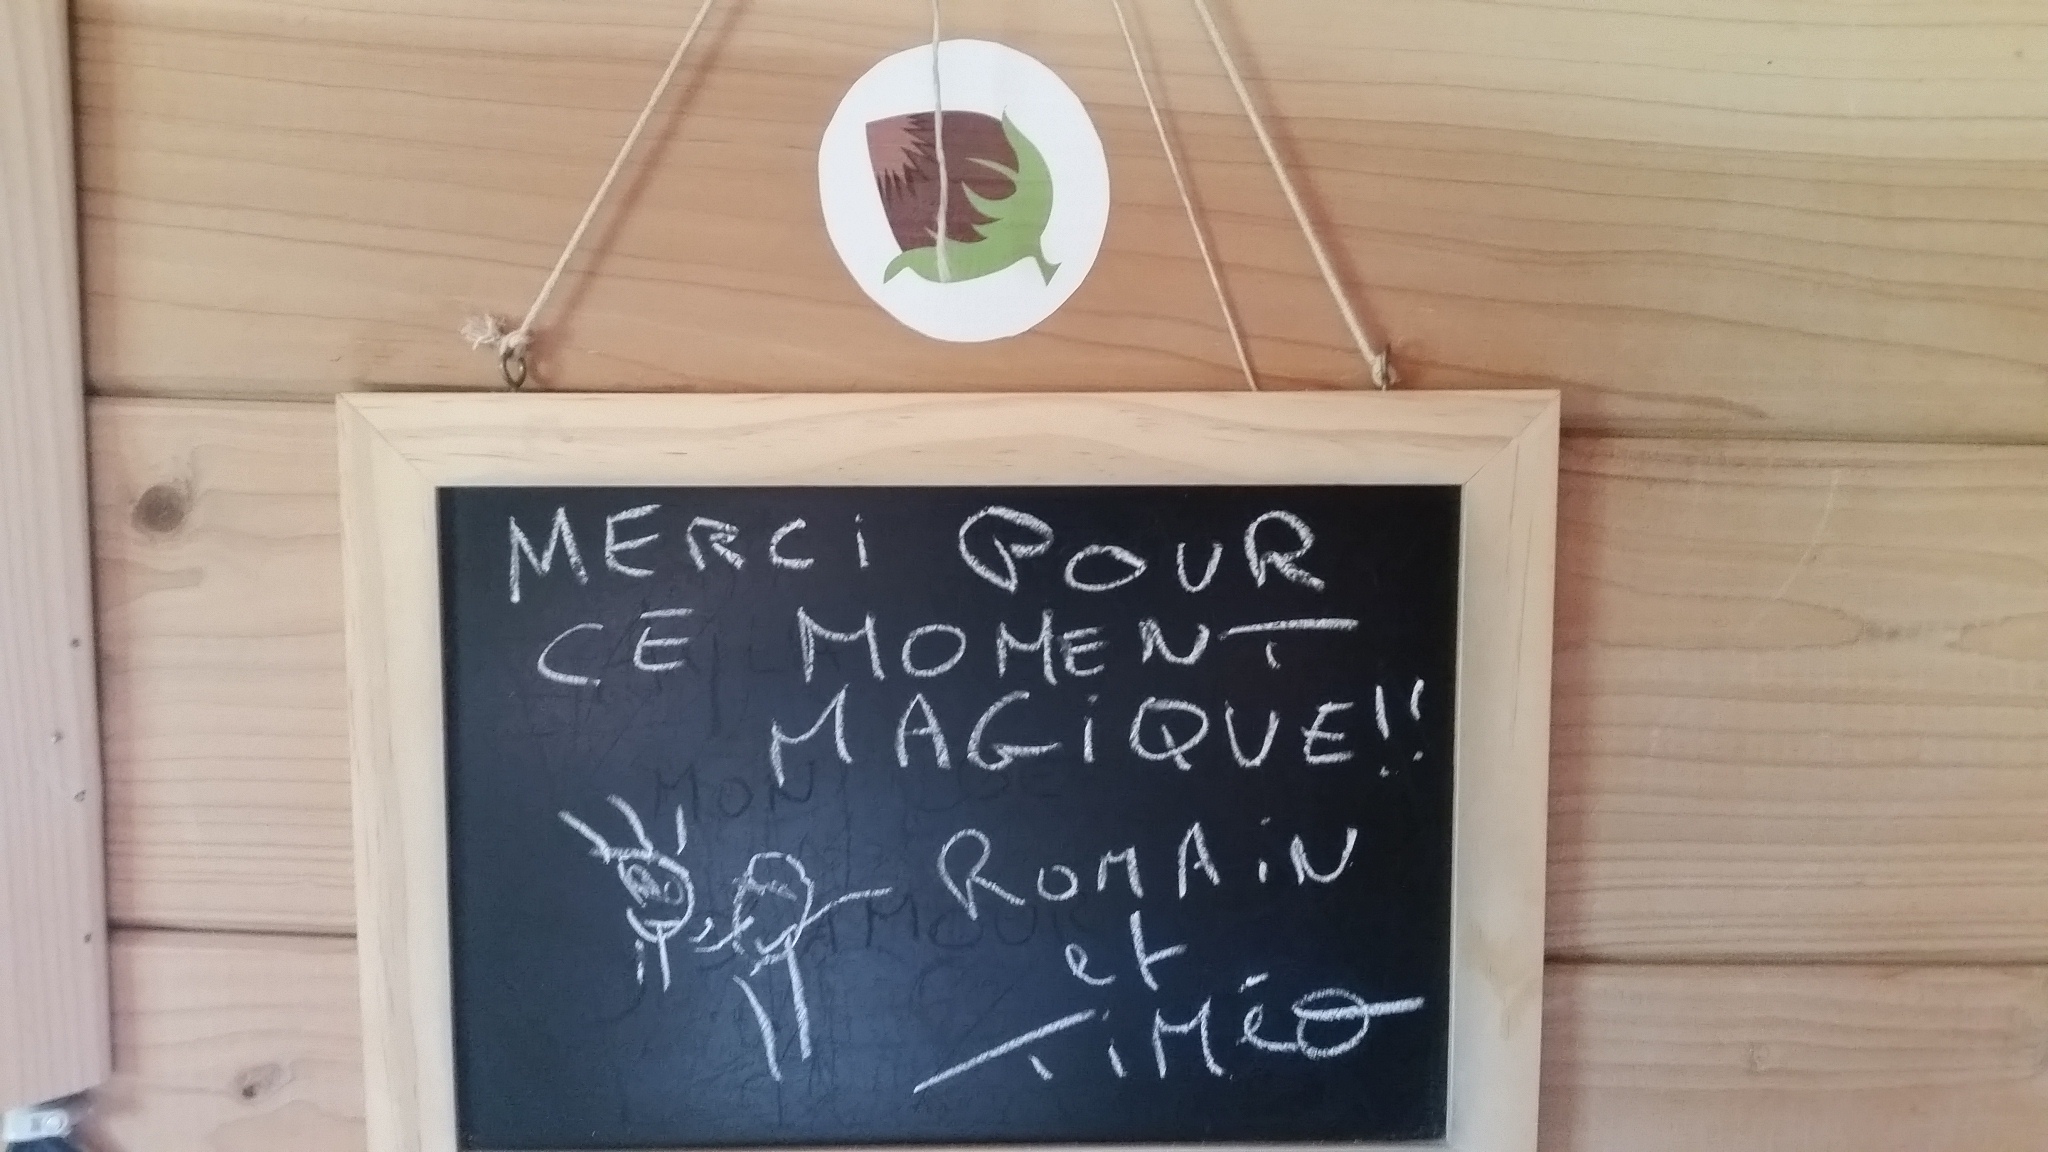 MERCi POUR
CE MOMENT
MAGiQUE!!
MON
AMOUR
ROMAiN
et
TiMéO